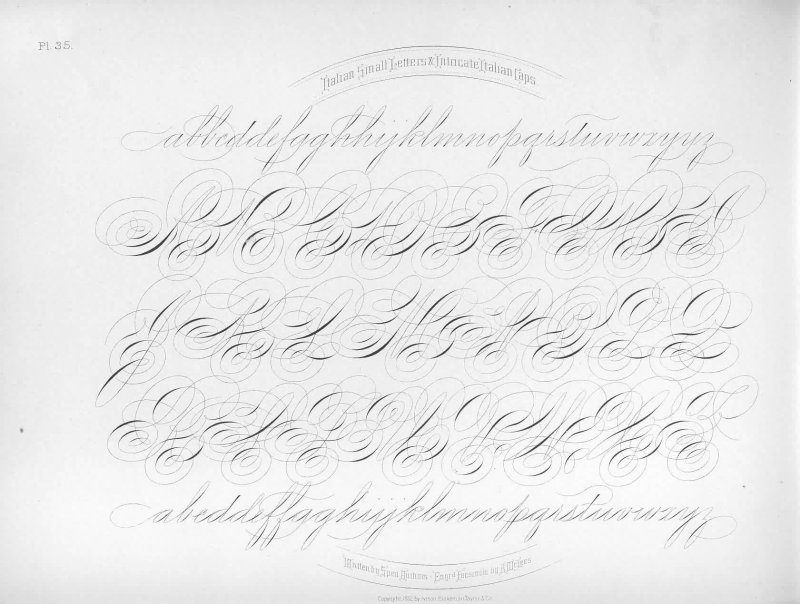 Pl. 35.
Italian Small Letters & Intricate Italian Caps.
abbcddefgghhijklmnopqrstuvwxyyz
A B C D E F G H I
J K L M N O P Q
R S T U V W X Y Z
abcddeffgghijklmnopqrstuvwxyz
Written by Spen. Authors - Engrd Facsimile by A. McLees
Copyright, 1882, by Ivison, Blakeman, Taylor & Co.